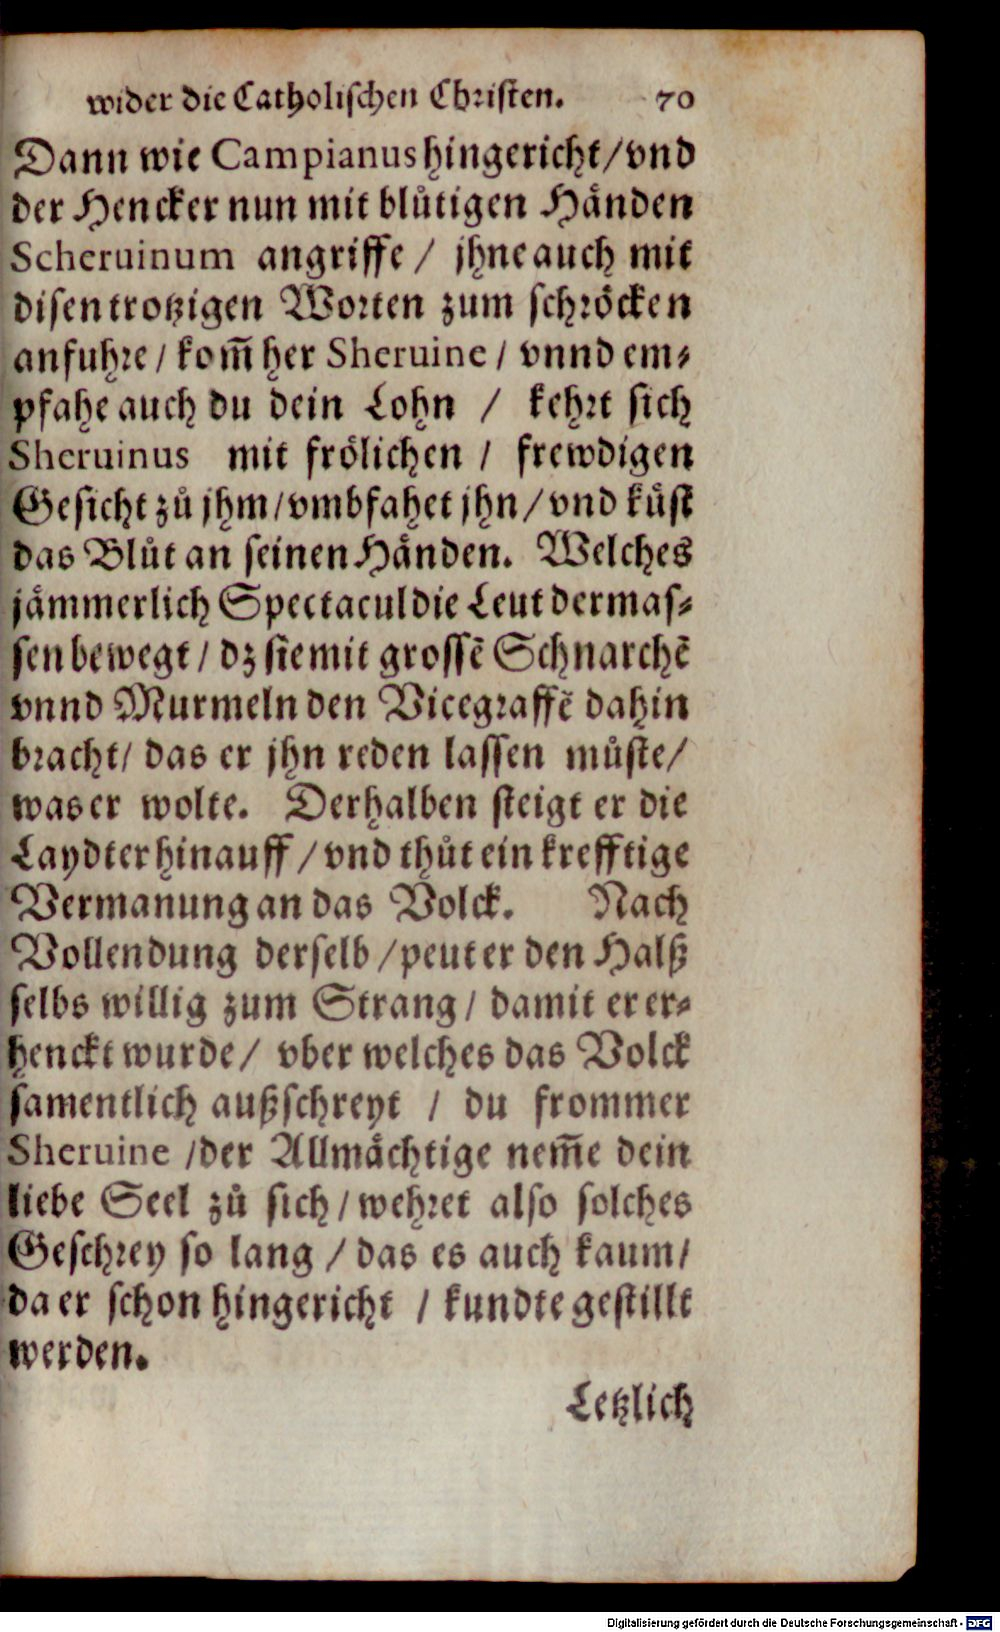 wider die Catholischen Christen. 70
Dann wie Campianus hingericht/vnd
der Hencker nun mit blůtigen Hånden
Scheruinum angriffe / jhne auch mit
disen trotzigen Worten zum schröcken
anfuhre / kom̃ her Sheruine / vnnd em⸗
pfahe auch du dein Lohn / kehrt sich
Sheruinus mit frölichen / frewdigen
Gesicht zů jhm/vmbfahet jhn/vnd kůst
das Blůt an seinen Hånden. Welches
jåmmerlich Spectacul die Leut dermas⸗
sen bewegt / dz sie mit grossẽ Schnarchẽ
vnnd Murmeln den Vicegraffẽ dahin
bracht/ das er jhn reden lassen můste/
was er wolte. Derhalben steigt er die
Laydter hinauff /vnd thůt ein krefftige
Vermanung an das Volck. Nach
Vollendung derselb /peut er den Halß
selbs willig zum Strang/ damit er er⸗
henckt wurde/ vber welches das Volck
samentlich außschreyt / du frommer
Sheruine /der Allmåchtige nem̃e dein
liebe Seel zů sich/wehret also solches
Geschrey so lang / das es auch kaum/
da er schon hingericht / kundte gestillt
werden.
Letzlich
Digitalisierung gefördert durch die Deutsche Forschungsgemeinschaft - DFG